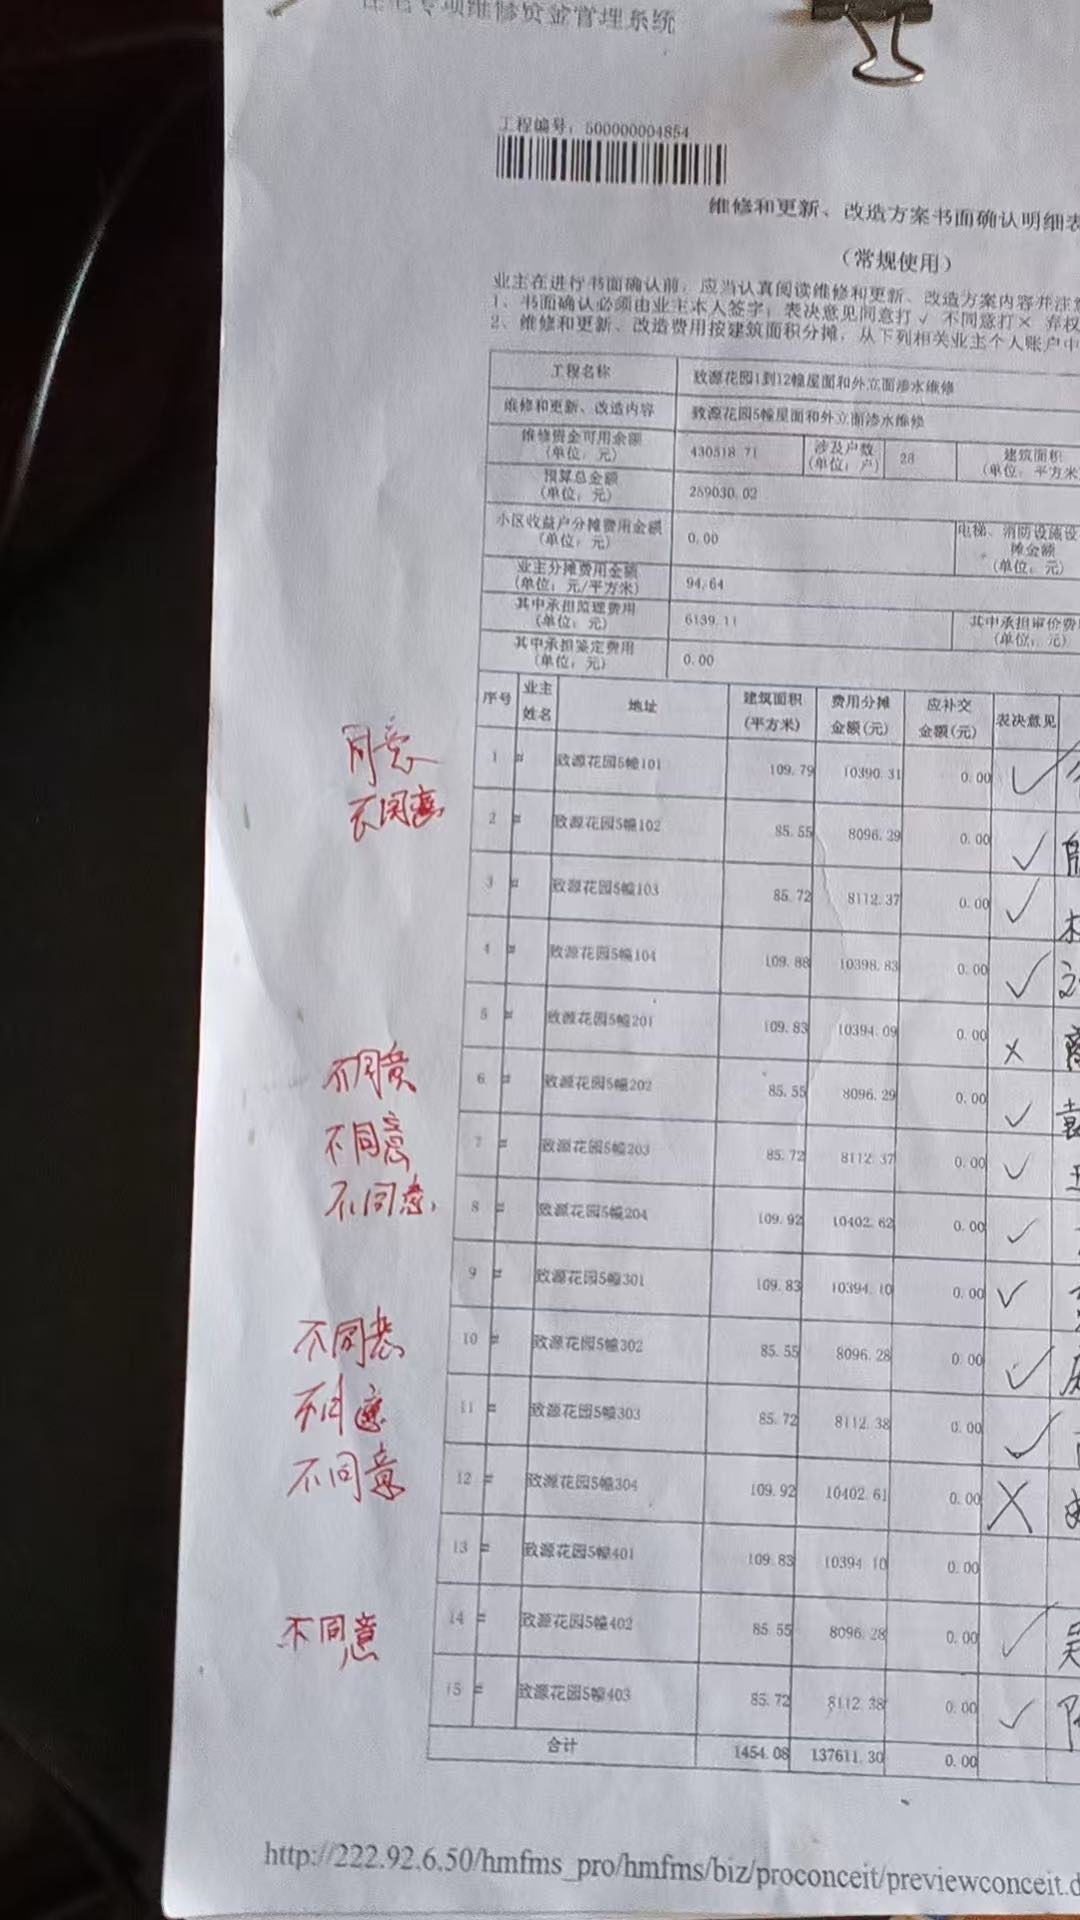 住宅专项维修资金管理系统
工程编号：500000004854
维修和更新、改造方案书面确认明细表
（常规使用）
业主在进行书面确认前，应当认真阅读维修和更新、改造方案内容并注意
1、书面确认必须由业主本人签字；表决意见同意打√ 不同意打× 弃权
2、维修和更新、改造费用按建筑面积分摊，从下列相关业主个人账户中
工程名称 致源花园1到12幢屋面和外立面渗水维修
维修和更新、改造内容 致源花园5幢屋面和外立面渗水维修
维修资金可用余额（单位：元） 430518.71 涉及户数（单位：户） 28 建筑面积（单位：平方米
预算总金额（单位：元） 259030.02
小区收益户分摊费用金额（单位：元） 0.00 电梯、消防设施设 摊金额（单位：元）
业主分摊费用金额（单位：元/平方米） 94.64
其中承担监理费用（单位：元） 6139.11 其中承担审价费用（单位：元）
其中承担鉴定费用（单位：元） 0.00
序号 业主姓名 地址 建筑面积（平方米） 费用分摊金额(元) 应补交金额(元) 表决意见
同意 1 # 致源花园5幢101 109.79 10390.31 0.00 √
不同意 2 # 致源花园5幢102 85.55 8096.29 0.00 √
3 # 致源花园5幢103 85.72 8112.37 0.00 √
4 # 致源花园5幢104 109.88 10398.83 0.00 √
5 # 致源花园5幢201 109.83 10394.09 0.00 ×
不同意 6 # 致源花园5幢202 85.55 8096.29 0.00 √
不同意 7 # 致源花园5幢203 85.72 8112.37 0.00 √
不同意 8 # 致源花园5幢204 109.92 10402.62 0.00 √
9 # 致源花园5幢301 109.83 10394.10 0.00 √
不同意 10 # 致源花园5幢302 85.55 8096.28 0.00 √
不同意 11 # 致源花园5幢303 85.72 8112.38 0.00 √
不同意 12 # 致源花园5幢304 109.92 10402.61 0.00 ×
13 # 致源花园5幢401 109.83 10394.10 0.00
不同意 14 # 致源花园5幢402 85.55 8096.28 0.00 √ 吴
15 # 致源花园5幢403 85.72 8112.38 0.00 √
合计 1454.08 137611.30 0.00
http://222.92.6.50/hmfms_pro/hmfms/biz/proconceit/previewconceit.d